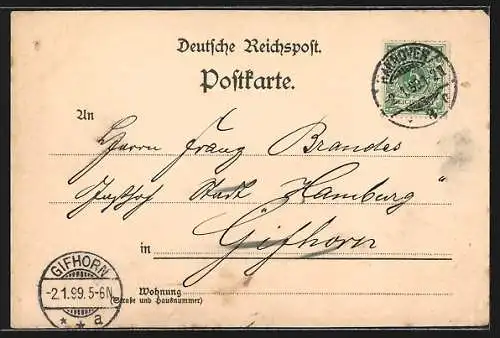 Deutsche Reichspost.
Postkarte.
HANNOVER
2.1.99.
An Herrn Franz Brandes
Gasthof Stadt „Hamburg"
in Gifhorn
Wohnung
(Straße und Hausnummer)
GIFHORN
-2.1.99.5-6N
* * a